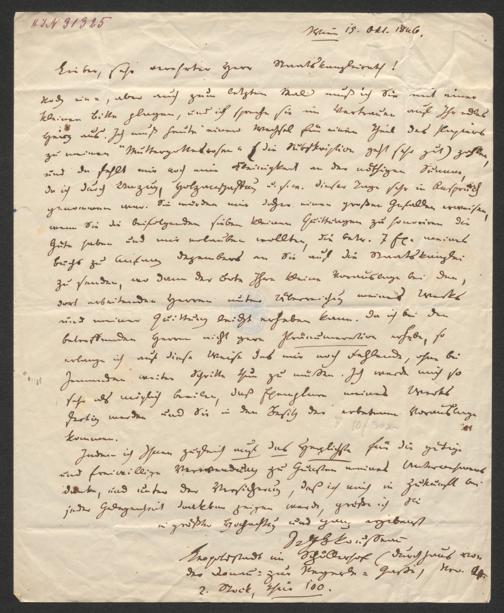 H.I.N. 31325
Wien 15. Okt. 1846.
Lieber, sehr verehrter Herr Staatskanzleirath!
Noch eine, aber auch zum letzten Mal muß ich Sie mit einer
kleinen Bitte plagen, und ich spreche sie im Vertrauen auf Ihr edles
Herz aus. Ich muß heute einen Wechsel für einen Theil des Papiers
zu meinen "Muttergottesrosen" (die Subskription geht sehr gut) zahlen,
und da fehlt mir noch eine Kleinigkeit an der nöthigen Summe,
da ich durch Umzug, Holzanschaffung u.s.w. dieser Tage sehr in Anspruch
genommen war. Sie würden mir daher einen großen Gefallen erweisen,
wenn Sie die beifolgenden sieben kleinen Quittungen zu honoriren die
Güte haben und mir erlauben wollten, die betr. 7 Ex. meines
Buchs zu Anfang Dezembers an Sie auf die Staatskanzlei
zu senden, wo dann der Bote Ihre kleine Vorauslage bei den,
dort arbeitenden Herren unter Überreichung meines Werks
und meiner Quittung leicht erheben kann. Da ich bei den
betreffenden Herren nicht gern Pränumeration erhebe, so
erlange ich auf diese Weise das mir noch Fehlende, ohne bei
Jemanden weiter Schritte thun zu müssen. Ich werde mich so
sehr als möglich beeilen, daß Exemplare meines Werks
fertig werden und Sie in den Besitz der erbetenen Vorauslage
kommen.
Indem ich Ihnen zugleich auf das Herzlichste für die gütige
und freiwillige Verwendung zu Gunsten meines Unternehmens
danke, und unter der Versicherung, daß ich mich in Zukunft bei
jeder Gelegenheit dankbar zeigen werde, grüße ich Sie
in größter Hochachtung und ganz ergebenst
Leopoldstadt im Schüllerhof (Durchhaus von
der Donau= zur Gasse), Nro.
2. Stock, Thür 100.